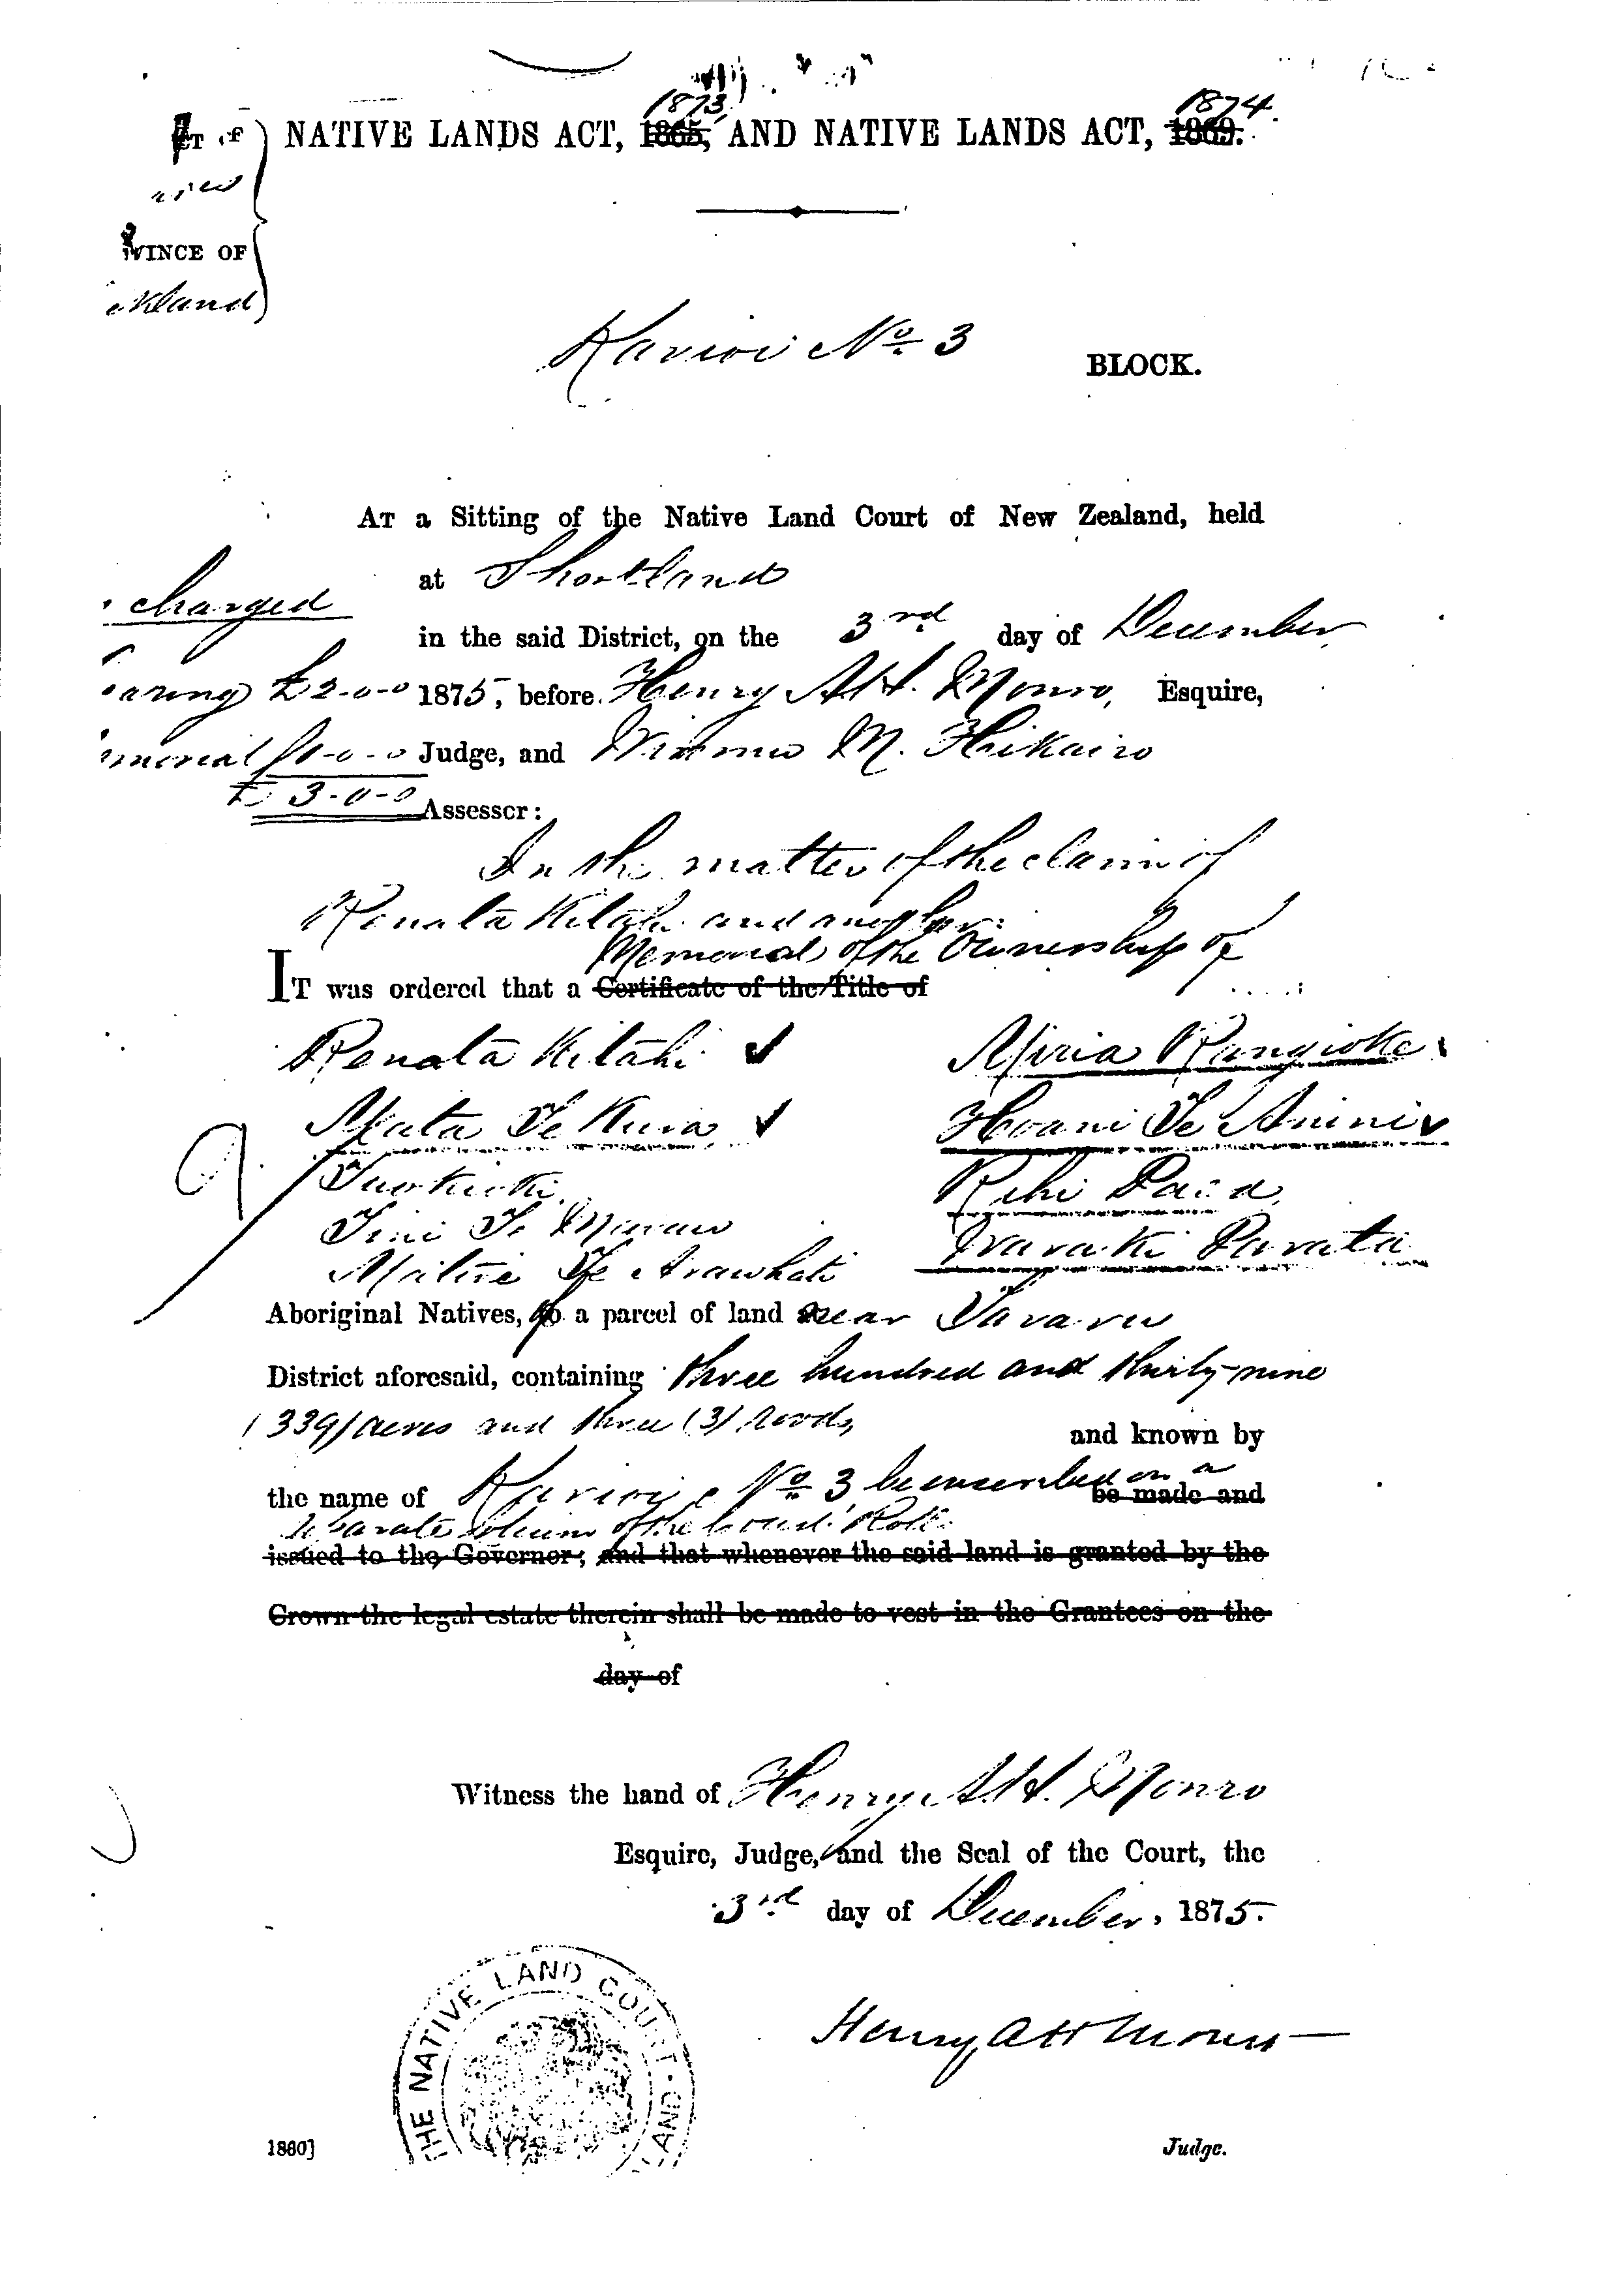 1873 1874
NATIVE LANDS ACT, 1865, AND NATIVE LANDS ACT, 1869.
VINCE OF
kland
Karioi No. 3 BLOCK.
AT a Sitting of the Native Land Court of New Zealand, held
at Shortland
charged
in the said District, on the 3rd day of December
earing £2-0-0 1875, before Henry A H. Monro, Esquire,
emorial £1-0-0 Judge, and Wiremu M. Hikairo
£ 3-0-0 Assessor:
In the matter of the claim of
Renata Kitahi and another:
Memorial of the Ownership of
IT was ordered that a Certificate of the Title of
Renata Kitahi Miria Rangioke
Mata Te Kura Hoani Te Anini
Tuokioki Rihi Paea
Tini Te Marau Waraki Parata
Maitire Te Arawhati
Aboriginal Natives, to a parcel of land near Tararu
District aforesaid, containing three hundred and thirty-nine
(339) acres and three (3) roods, and known by
the name of Karioi No. 3 be inscribed on a be made and
separate folium of the Court Rolls
issued to the Governor; and that whenever the said land is granted by the
Crown the legal estate therein shall be made to vest in the Grantees on the
day of
Witness the hand of Henry A H. Monro
Esquire, Judge, and the Seal of the Court, the
3rd day of December, 1875.
THE NATIVE LAND COURT
Henry A H Monro
1880] Judge.